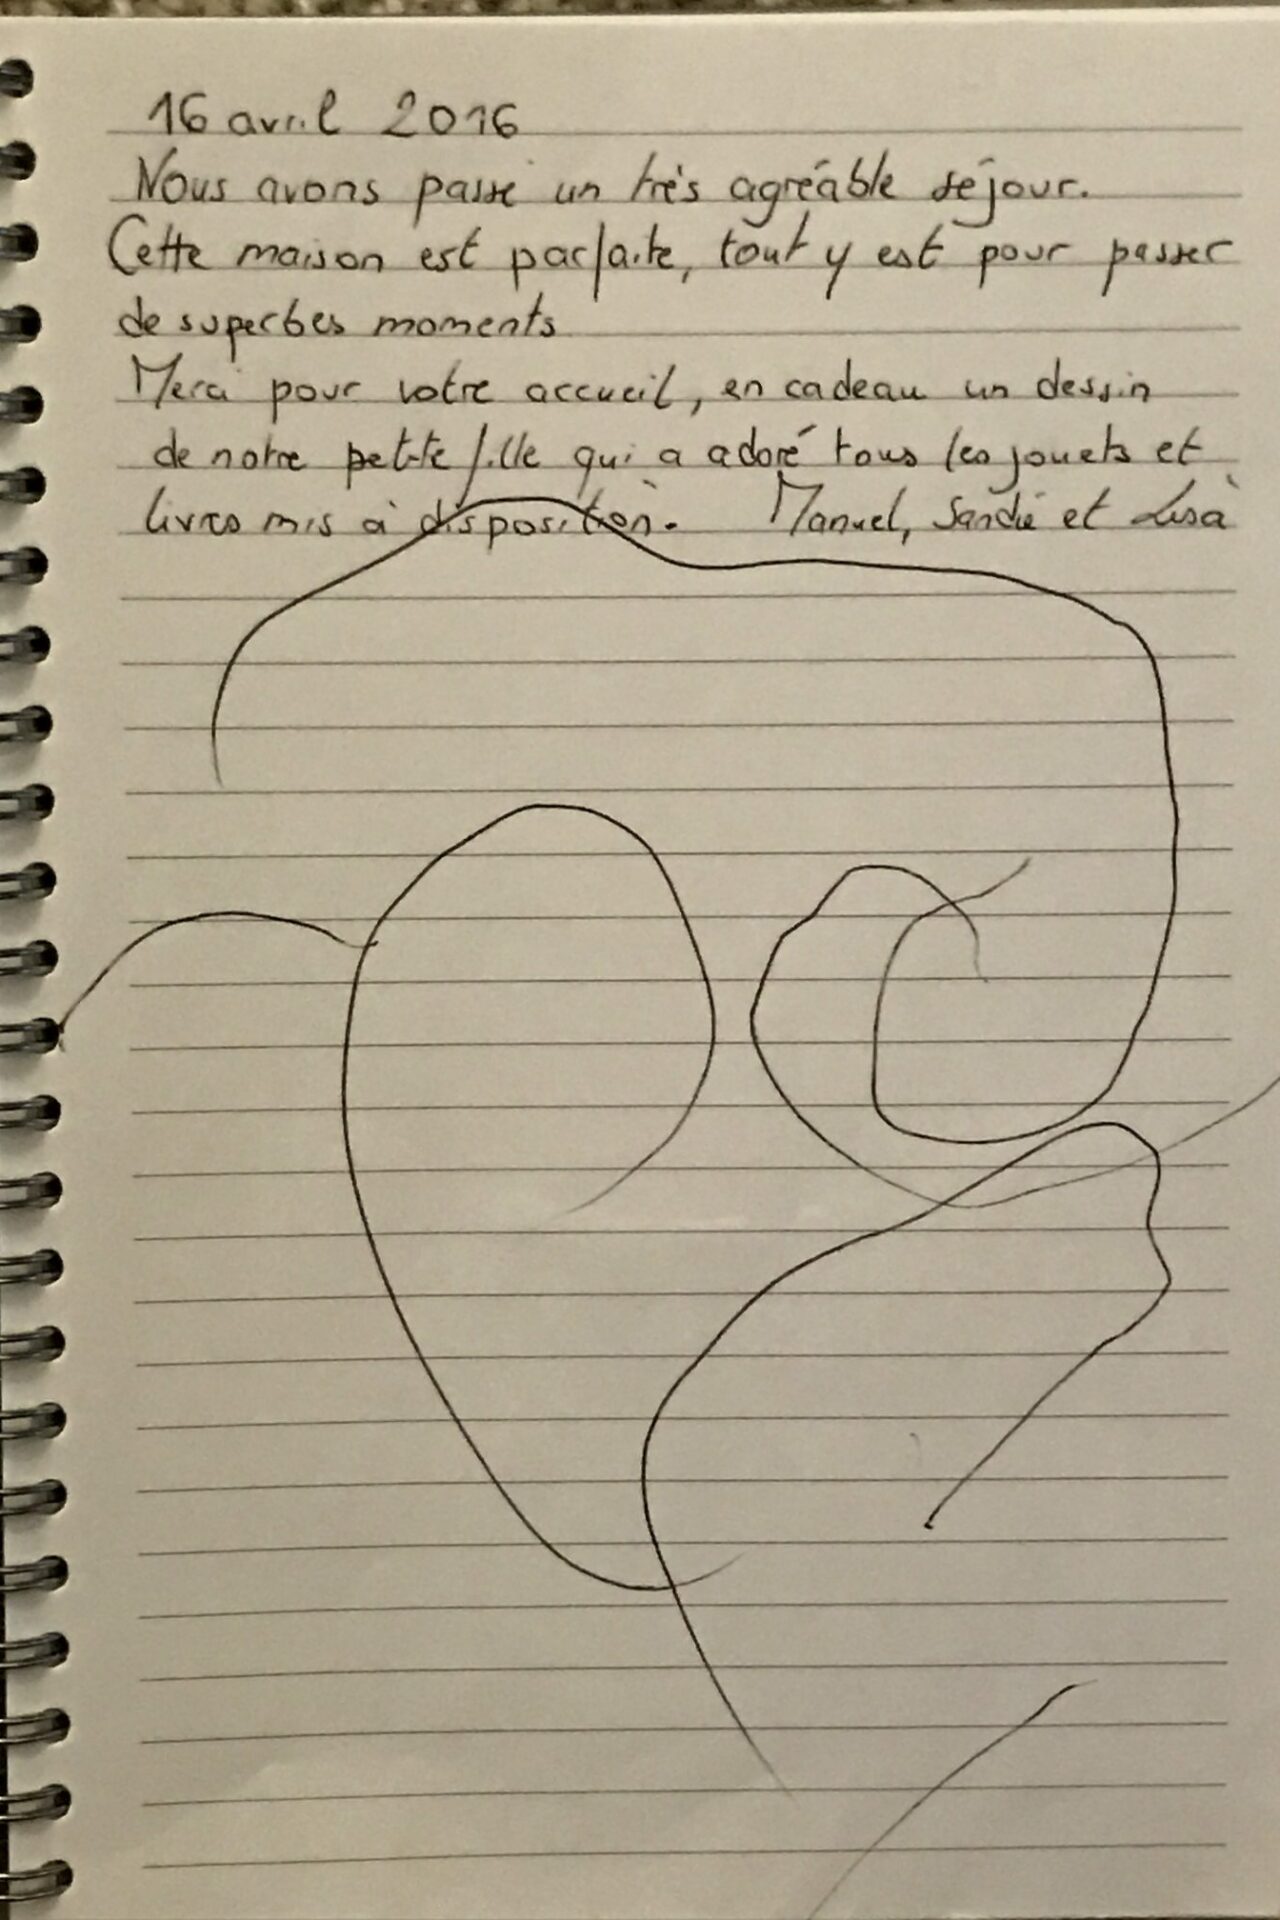 16 avril 2016
Nous avons passé un très agréable séjour.
Cette maison est parfaite, tout y est pour passer
de superbes moments
Merci pour votre accueil, en cadeau un dessin
de notre petite fille qui a adoré tous les jouets et
livres mis à disposition. Manuel, Sandie et Lisa